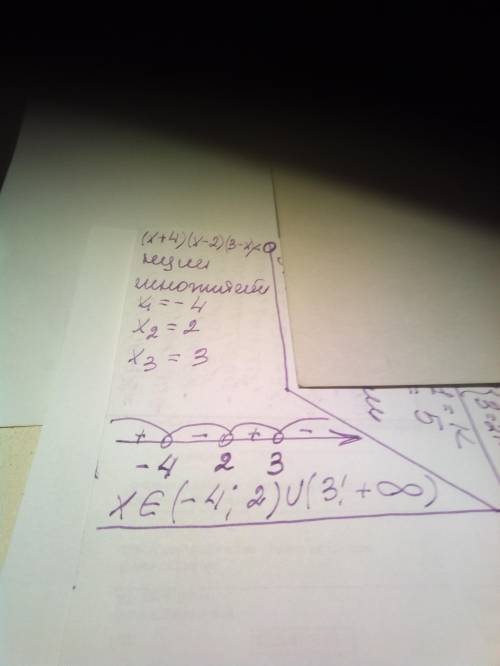 (x+4)(x-2)(3-x)<0
нули
множителей
x₁ = -4
x₂ = 2
x₃ = 3
+ - + -
-4 2 3
X ∈ (-4; 2) ∪ (3; +∞)
= 5